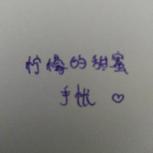 柠檬的甜蜜
手帐 ♡